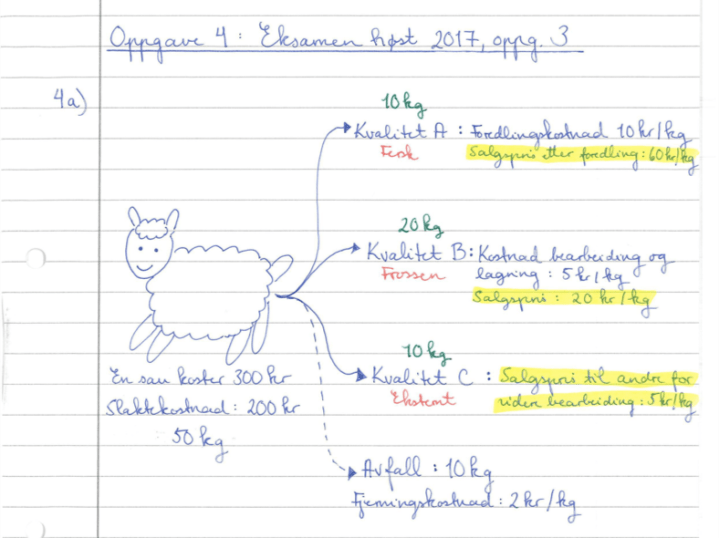 Oppgave 4 : Eksamen høst 2017, oppg. 3
4a)
10 kg
Kvalitet A : Foredlingskostnad 10 kr/kg
Fersk
Salgspris etter foredling: 60 kr/kg
20 kg
Kvalitet B: Kostnad bearbeiding og
Frossen
lagring : 5 kr/kg
Salgspris : 20 kr/kg
10 kg
Kvalitet C : Salgspris til andre for
Eksternt
videre bearbeiding: 5 kr/kg
En sau koster 300 kr
Slaktekostnad: 200 kr
50 kg
Avfall : 10 kg
Fjerningskostnad: 2 kr/kg